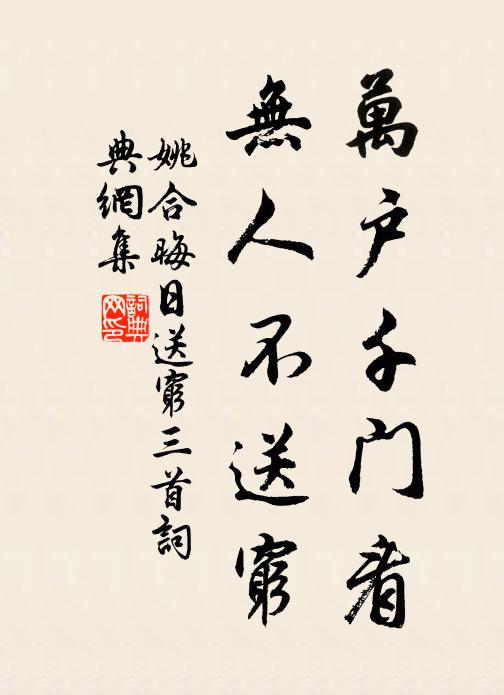 萬户千门看
無人不送窮
姚合晦日送窮三首詞
典網集
詞典
网印